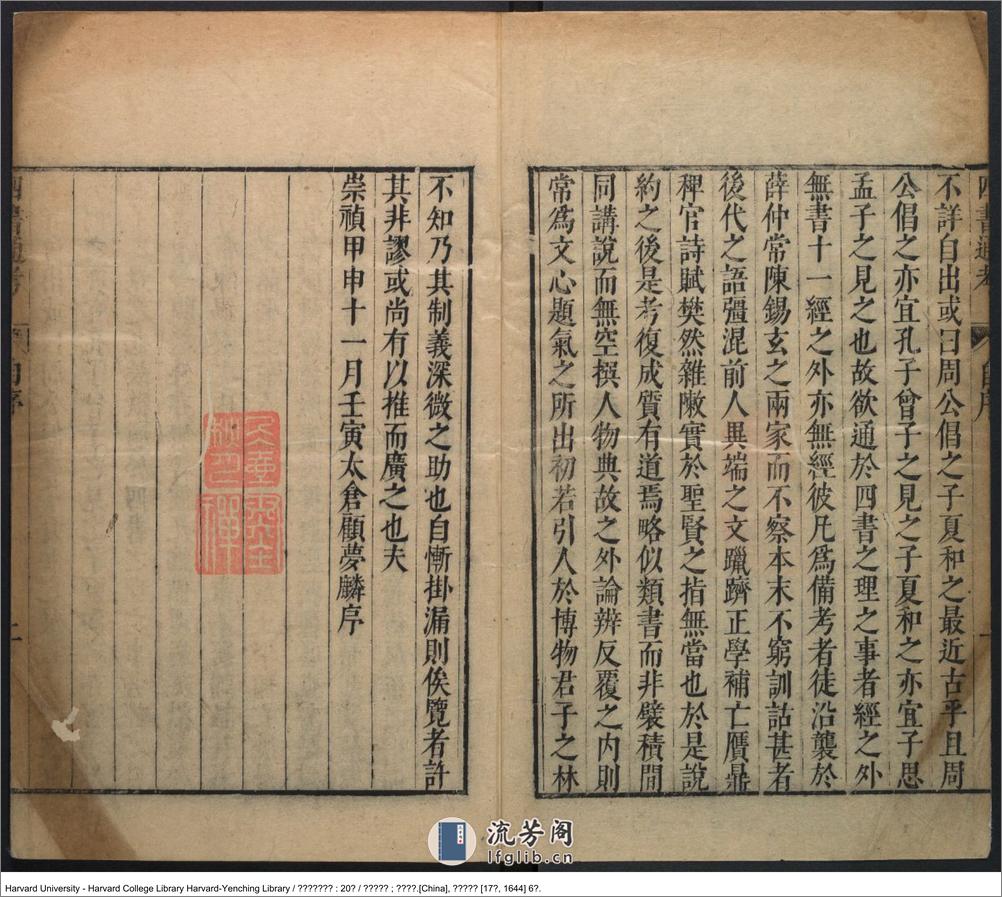 四書通考
自序
不詳自出或曰周公倡之子夏和之最近古乎且周
公倡之亦宜孔子曾子之見之子夏和之亦宜子思
孟子之見之也故欲通於四書之理之事者經之外
無書十一經之外亦無經彼凡為備考者徒沿襲於
薛仲常陳錫玄之兩家而不察本末不窮訓詁甚者
後代之語彊混前人異端之文躐躋正學補亡贋鼎
稗官詩賦樊然雜陳實於聖賢之指無當也於是說
約之後是考復成質有道焉略似類書而非襞積閒
同講說而無空撰人物典故之外論辨反覆之內則
常為文心題氣之所出初若引人於博物君子之林
不知乃其制義深微之助也自慚掛漏則俟覽者許
其非謬或尚有以推而廣之也夫
崇禎甲申十一月壬寅太倉顧夢麟序
四書通考
自序
二
流芳阁
lfglib.cn
Harvard University - Harvard College Library Harvard-Yenching Library / ??????? : 20? / ????? ; ????.[China], ????? [17?, 1644] 6?.